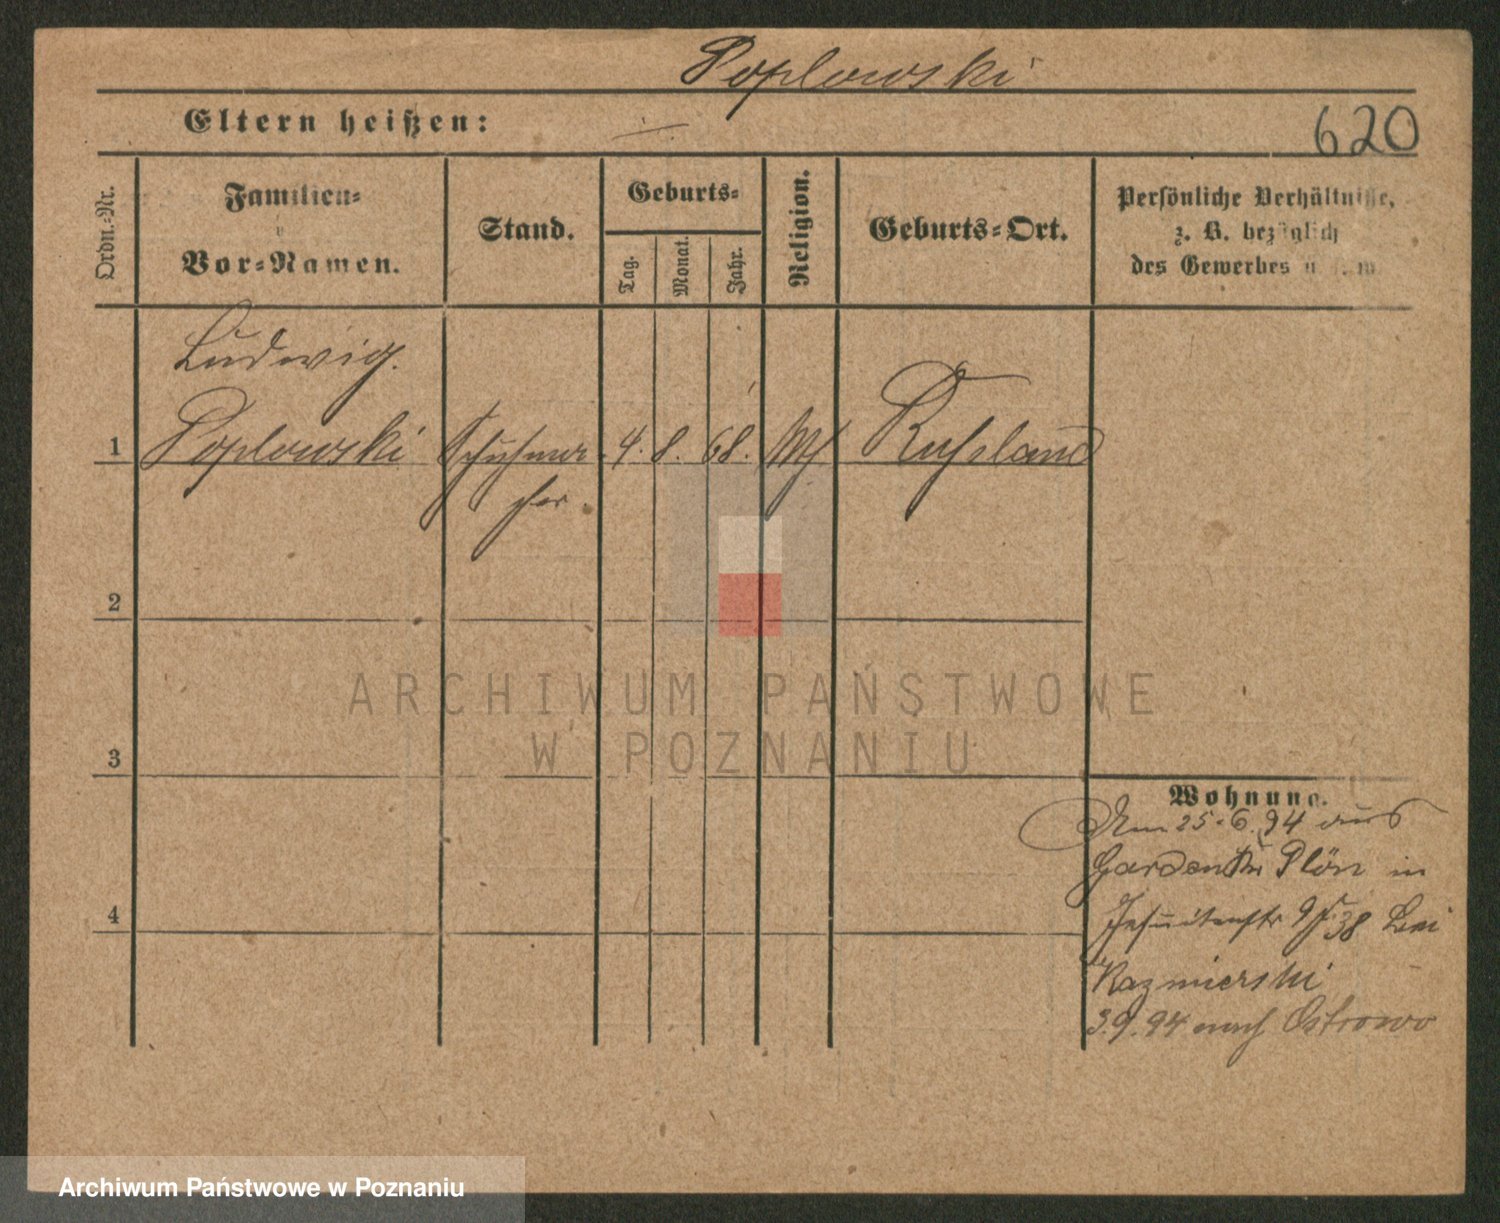 Poplowski
Eltern heißen: ./.
620
Ordn.-Nr.
Familien-
u
Vor-Namen.
Stand.
Geburts-
Tag.
Monat.
Jahr.
Religion.
Geburts-Ort.
Persönliche Verhältnisse,
z. B. bezüglich
des Gewerbes u. s. w.
Ludwig.
1 Poplowski Schuhma 4. 8. 68. Russland
cher.
2
3
4
Wohnung.
Am 25.6.94 aus
Plön in
Jesuitenstr 9 38 bei
Kazmierski
3.9.94 nach Ostrowo
ARCHIWUM PAŃSTWOWE
W POZNANIU
Archiwum Państwowe w Poznaniu